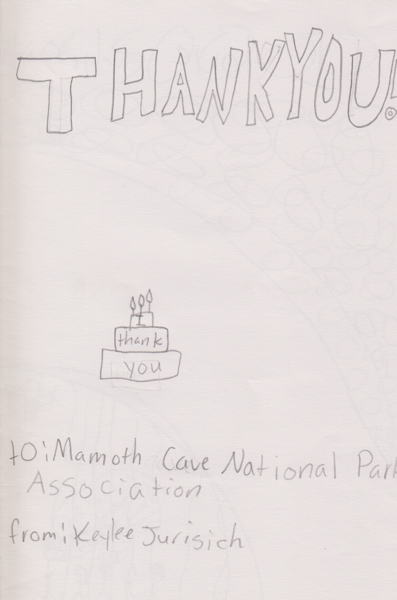 THANKYOU!
I
thank
you
to: Mamoth Cave National Park
Association
from: Keylee Jurisich